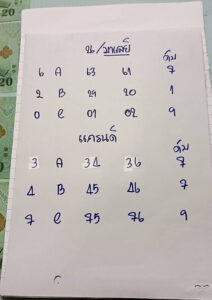 น/มาเลย์
ดับ
6 A 63 61 7
2 B 29 20 1
0 C 01 02 9
แครนดี้
ดับ
3 A 34 36 7
4 B 45 46 7
7 C 75 76 9
20